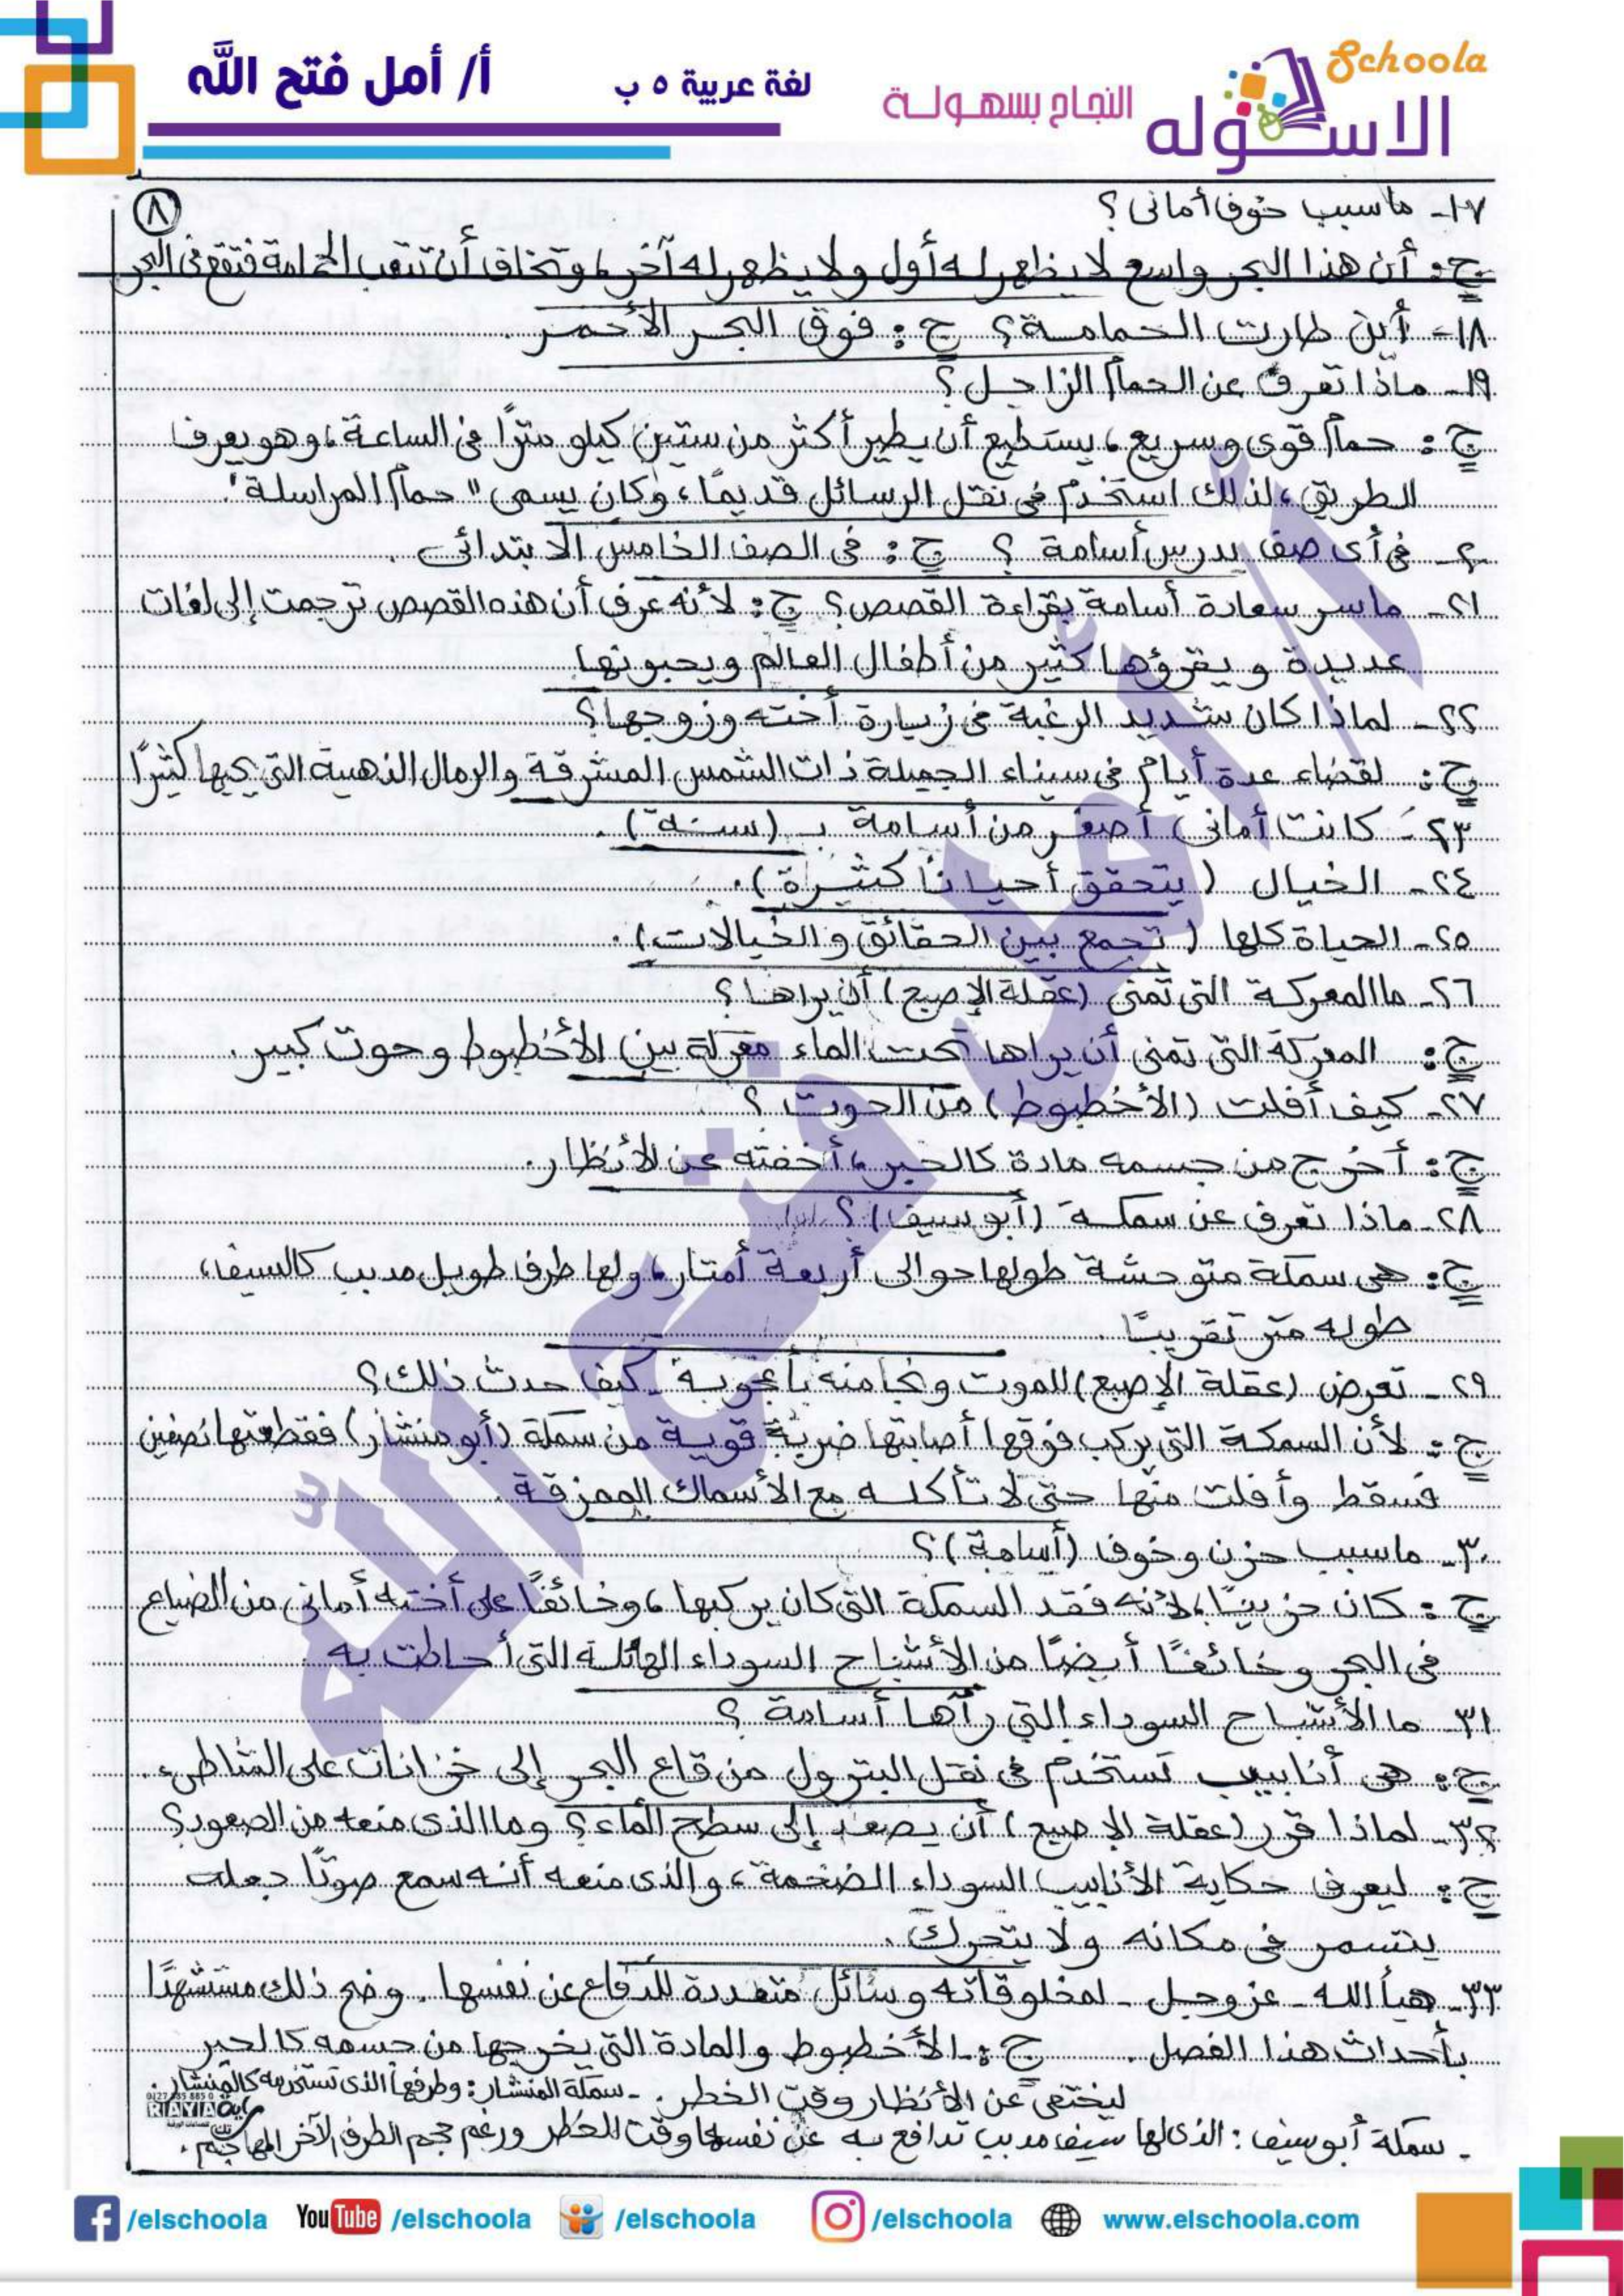 Schoola
الاسكوله
النجاح بسهولة
لغة عربية ٥ ب
أ/ أمل فتح الله
٨
١٧- ما سبب خوف أمانى؟
ج: أن هذا البحر واسع لا يظهر له أول ولا يظهر له آخر، وتخاف أن تتعب الحمامة فتقع فى البحر
١٨- أين طارت الحمامة؟ ج: فوق البحر الأحمر.
١٩- ماذا تعرف عن الحمام الزاجل؟
ج: حمام قوى وسريع، يستطيع أن يطير أكثر من ستين كيلو مترًا فى الساعة، وهو يعرف
الطريق، لذلك استخدم فى نقل الرسائل قديمًا، وكان يسمى "حمام المراسلة".
٢٠- فى أى صف يدرس أسامة؟ ج: فى الصف الخامس الابتدائى.
٢١- ما سر سعادة أسامة بقراءة القصص؟ ج: لأنه عرف أن هذه القصص ترجمت إلى لغات
عديدة ويقرؤها كثير من أطفال العالم ويحبونها
٢٢- لماذا كان شديد الرغبة فى زيارة أخته وزوجها؟
ج: لقضاء عدة أيام فى سيناء الجميلة ذات الشمس المشرقة والرمال الذهبية التى يحبها كثيرًا
٢٣- كانت أمانى أصغر من أسامة بـ (سنة).
٢٤- الخيال (يتحقق أحيانًا كثيرة).
٢٥- الحياة كلها (تجمع بين الحقائق والخيالات).
٢٦- ما المعركة التى تمنى (عقلة الإصبع) أن يراها؟
ج: المعركة التى تمنى أن يراها تحت الماء معركة بين الأخطبوط وحوت كبير.
٢٧- كيف أفلت (الأخطبوط) من الحوت؟
ج: أخرج من جسمه مادة كالحبر، أخفته عن الأنظار.
٢٨- ماذا تعرف عن سمكة (أبو سيف)؟
ج: هى سمكة متوحشة طولها حوالى أربعة أمتار، ولها طرف طويل مدبب كالسيف،
طوله متر تقريبًا.
٢٩- تعرض (عقلة الإصبع) للموت ونجا منه بأعجوبة. كيف حدث ذلك؟
ج: لأن السمكة التى يركب فوقها أصابتها ضربة قوية من سمكة (أبو منشار) فقطعتها نصفين
فسقط وأفلت منها حتى لا تأكله مع الأسماك الممزقة.
٣٠- ما سبب حزن وخوف (أسامة)؟
ج: كان حزينًا، لأنه فقد السمكة التى كان يركبها، وخائفًا على أخته أمانى من الضياع
فى البحر وخائفًا أيضًا من الأشباح السوداء الهائلة التى أحاطت به.
٣١- ما الأشباح السوداء التى رآها أسامة؟
ج: هى أنابيب تستخدم فى نقل البترول من قاع البحر إلى خزانات على الشاطىء.
٣٢- لماذا قرر (عقلة الإصبع) أن يصعد إلى سطح الماء؟ وما الذى منعه من الصعود؟
ج: ليعرف حكاية الأنابيب السوداء الضخمة، والذى منعه أنه سمع صوتًا جعله
يتسمر فى مكانه ولا يتحرك.
٣٣- هيأ الله - عز وجل - لمخلوقاته وسائل متعددة للدفاع عن نفسها. وضح ذلك مستشهدًا
بأحداث هذا الفصل. ج: الأخطبوط والمادة التى يخرجها من جسمه كالحبر
ليختفى عن الأنظار وقت الخطر. - سمكة المنشار: وطرفها الذى تستخدمه كالمنشار.
- سمكة أبو سيف: الذى لها سيف مدبب تدافع به عن نفسها وقت الخطر ورغم حجم الطرف الآخر المهاجم.
RAYA
أ/ أمل فتح الله
/elschoola YouTube /elschoola /elschoola /elschoola www.elschoola.com